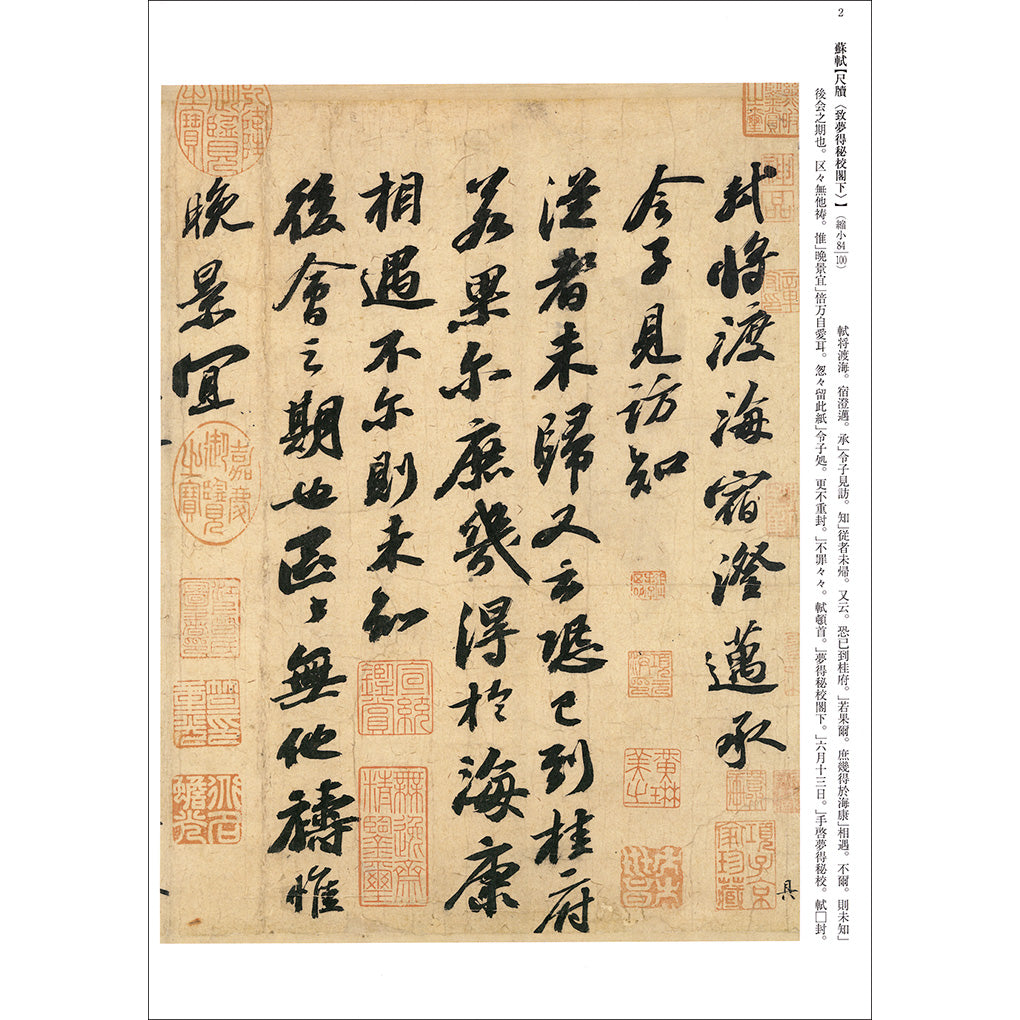 2
蘇軾【尺牘〈致夢得秘校閣下〉】（縮小84/100）　軾将渡海。宿澄邁。承」令子見訪。知」従者未帰。又云。恐已到桂府。」若果爾。庶幾得於海康」相遇。不爾。則未知」
後会之期也。区々無他祷。惟」晩景宜」倍万自愛耳。怱々留此紙」令子処。更不重封。」不罪々々。軾頓首。」夢得秘校閣下。」六月十三日。」手啓夢得秘校。軾□封。
軾將渡海宿澄邁承
令子見訪知
從者未歸又云恐已到桂府
若果尓庶幾得於海康
相遇不尓則未知
後會之期也區々無他禱惟
晚景宜
具
項子京家珍藏
黃琳美之
宣統鑑賞
無逸齋精鑒璽
乾隆御覽之寶
嘉慶御覽之寶